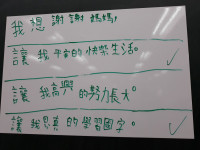 我想謝謝媽媽,
讓我平安的快樂生活。
讓我高興的努力長大。
讓我認真的學習國字。